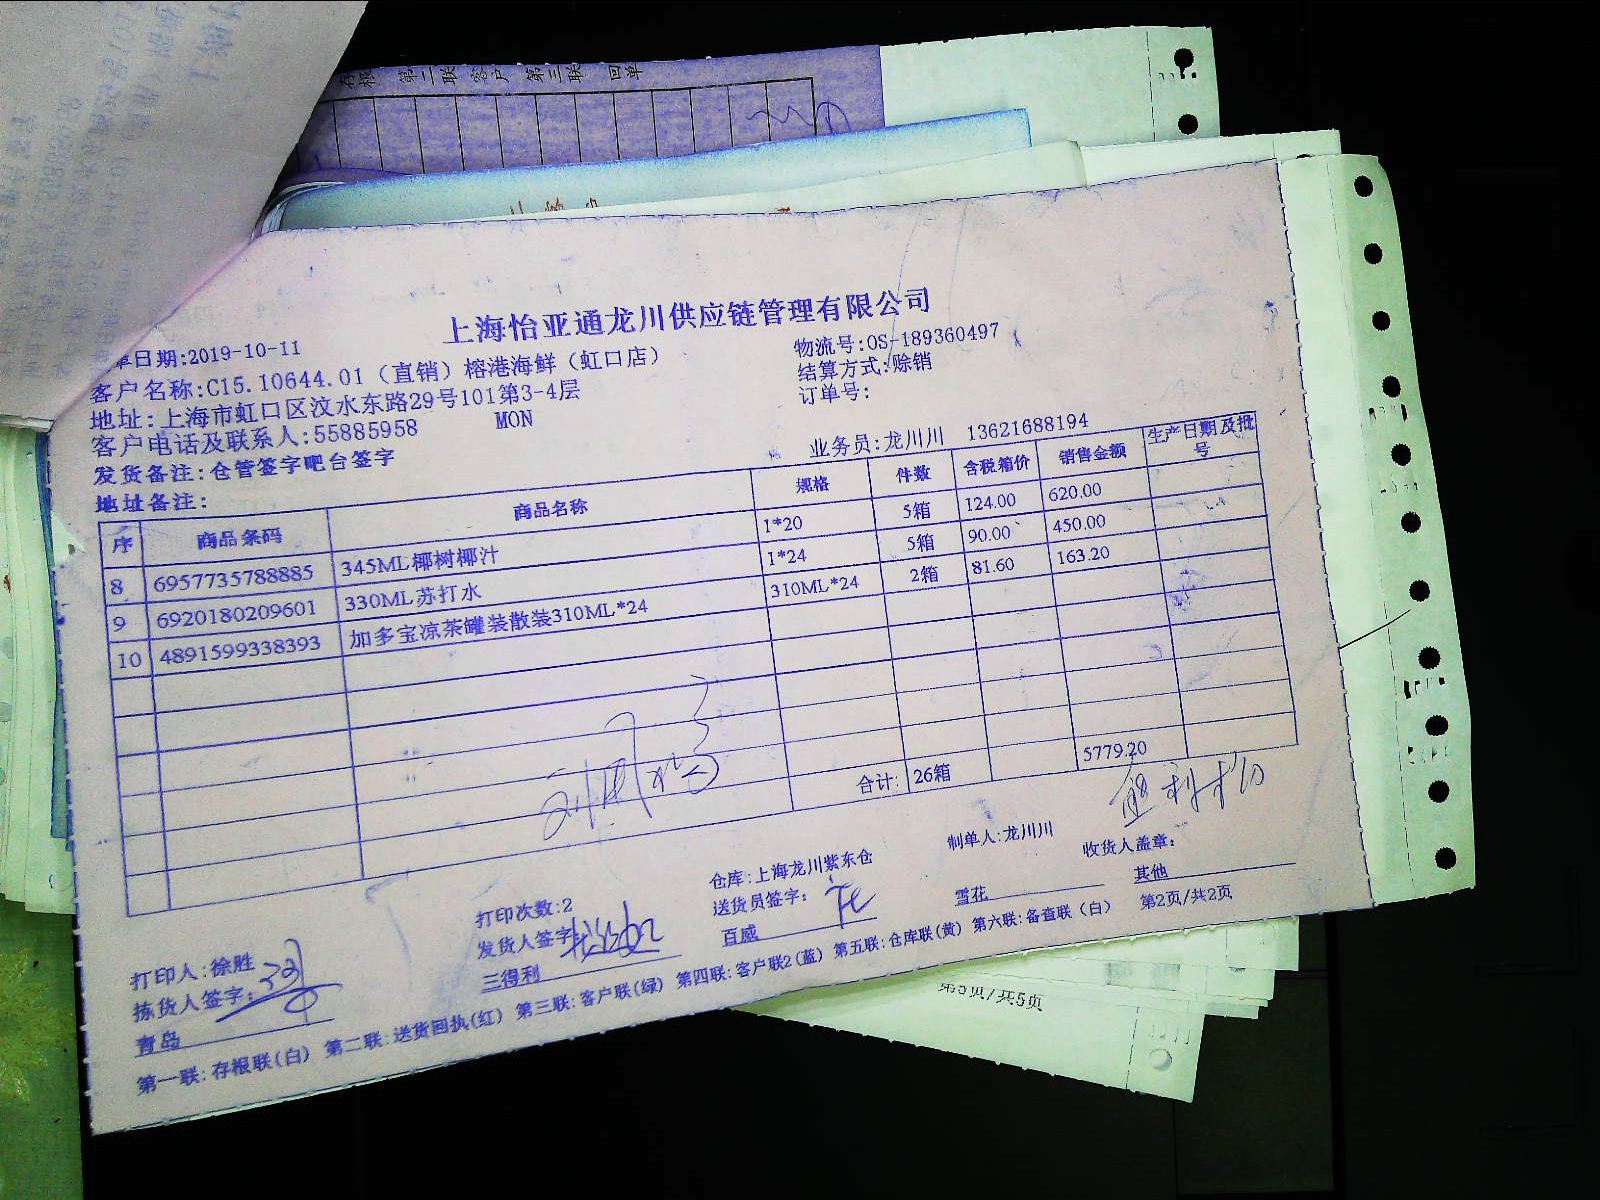 存根 第二联 客户 第三联 回单
上海怡亚通龙川供应链管理有限公司
单日期:2019-10-11
物流号:OS-189360497
客户名称:C15.10644.01（直销）榕港海鲜（虹口店）
结算方式:赊销
地址:上海市虹口区汶水东路29号101第3-4层
订单号:
客户电话及联系人:55885958 MON
业务员:龙川川 13621688194
发货备注:仓管签字吧台签字
地址备注:
序 商品条码 商品名称 规格 件数 含税箱价 销售金额 生产日期及批号
8 6957735788885 345ML椰树椰汁 1*20 5箱 124.00 620.00
9 6920180209601 330ML苏打水 1*24 5箱 90.00 450.00
10 4891599338393 加多宝凉茶罐装散装310ML*24 310ML*24 2箱 81.60 163.20
合计: 26箱 5779.20
打印人:徐胜 打印次数:2 仓库:上海龙川紫东仓 制单人:龙川川 收货人盖章:
拣货人签字: 发货人签字 送货员签字:
青岛 三得利 百威 雪花 其他
第一联:存根联(白) 第二联:送货回执(红) 第三联:客户联(绿) 第四联:客户联2(蓝) 第五联:仓库联(黄) 第六联:备查联(白) 第2页/共2页
第5页/共5页